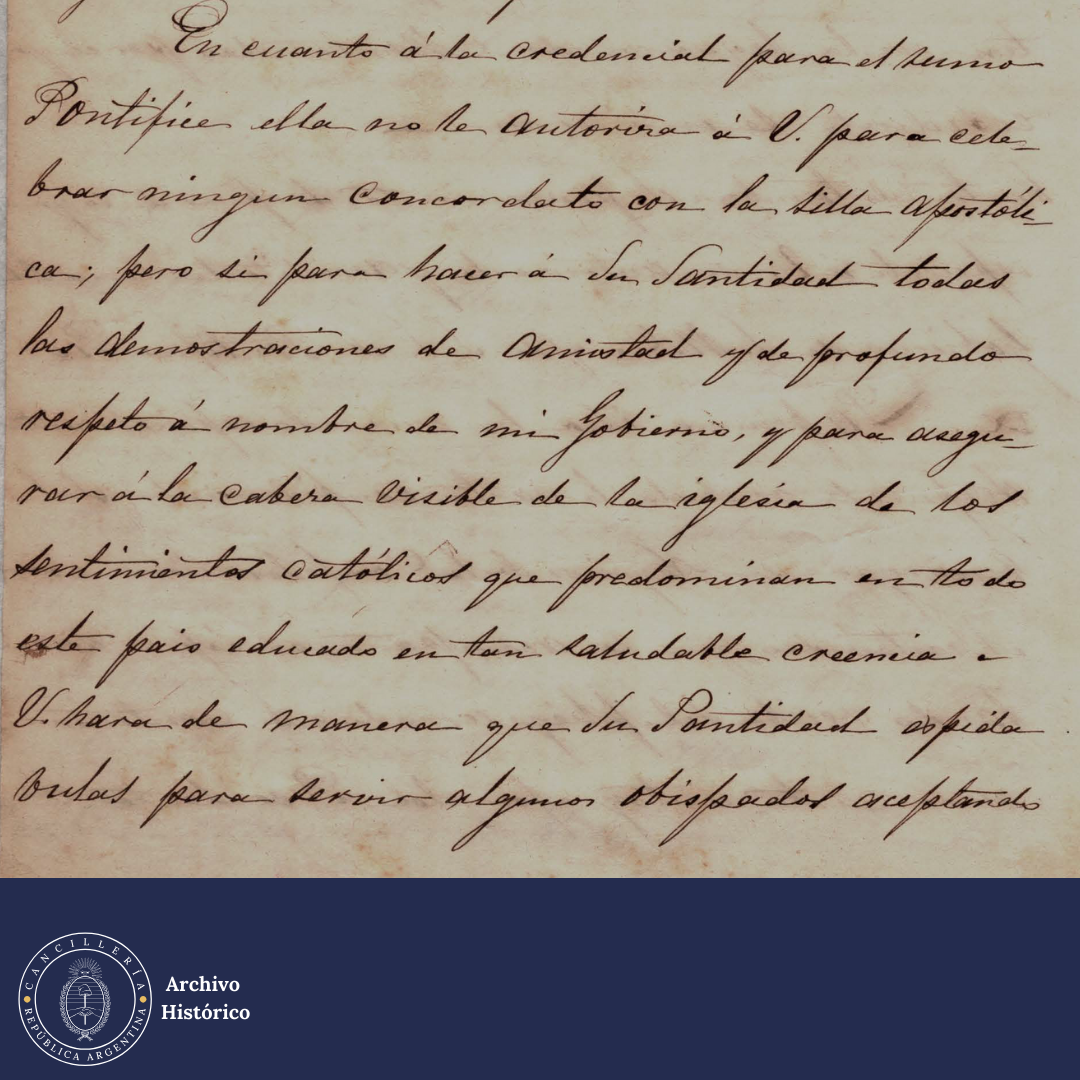 En cuanto á la credencial para el sumo
Pontifice ella no le autoriza á V. para cele-
brar ningun concordato con la silla apostóli-
ca; pero si para hacer á Su Santidad todas
las demostraciones de amistad y de profundo
respeto á nombre de mi Gobierno, y para asegu-
rar á la cabeza visible de la iglesia de los
sentimientos católicos que predominan en todo
este pais educado en tan saludable creencia.
V. hara de manera que Su Santidad espida
bulas para servir algunos obispados aceptando
CANCILLERÍA
REPÚBLICA ARGENTINA
Archivo
Histórico